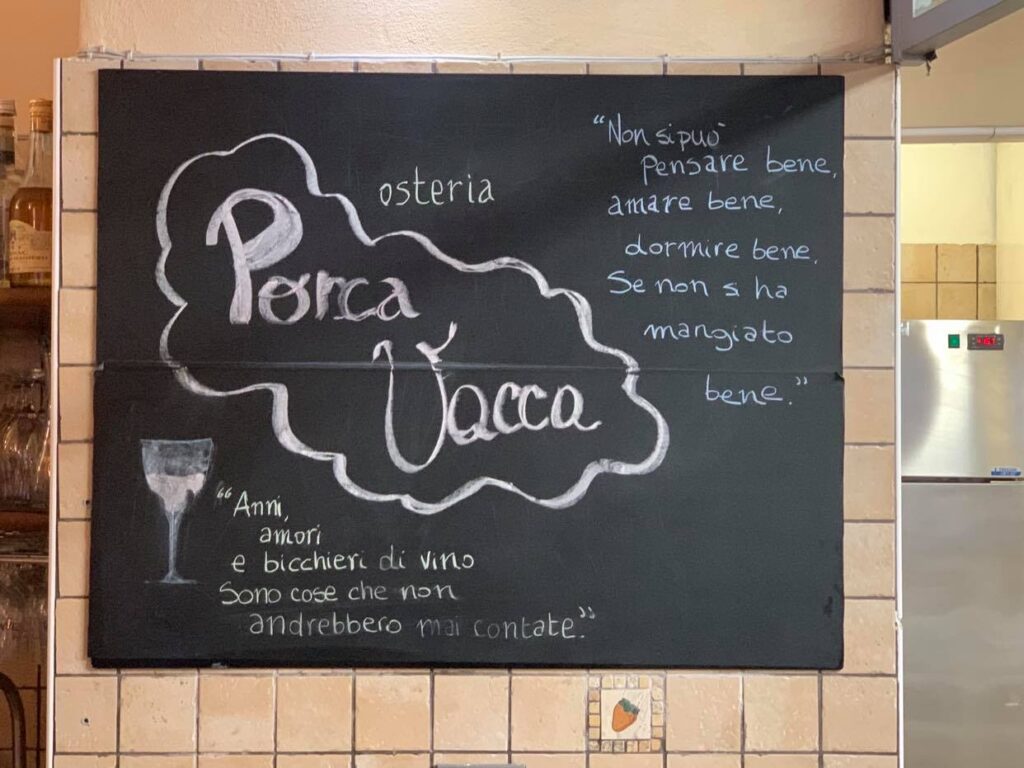 osteria
Porca
Vacca
"Non si può
Pensare bene,
amare bene,
dormire bene,
Se non s ha
mangiato
bene."
"Anni,
amori
e bicchieri di vino
Sono cose che non
andrebbero mai contate."